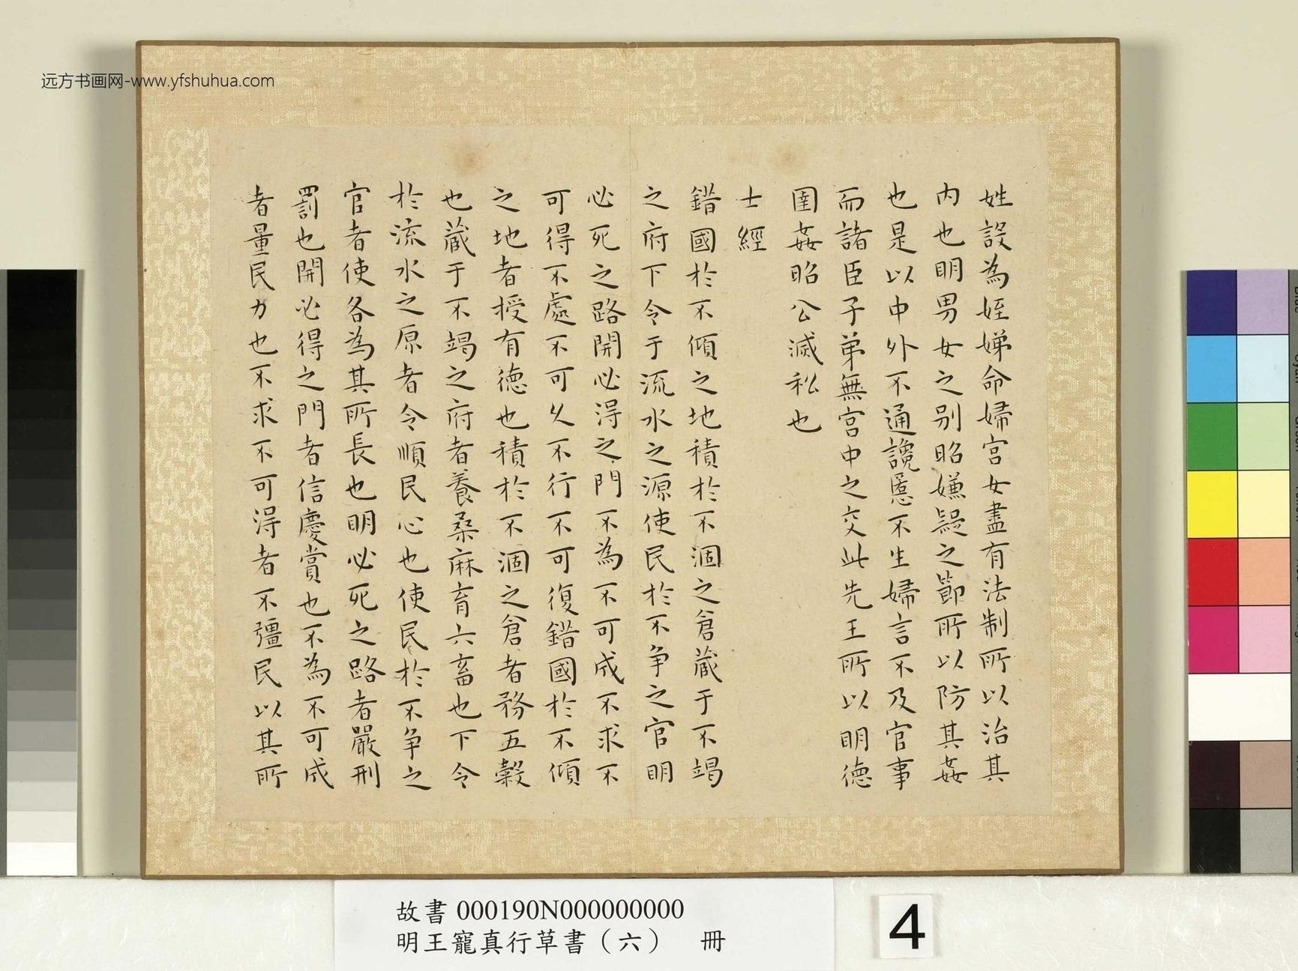 远方书画网-www.yfshuhua.com
姓設為姪娣命婦宮女盡有法制所以治其
內也明男女之別昭嫌疑之節所以防其姦
也是以中外不通讒慝不生婦言不及官事
而諸臣子弟無宮中之交此先王所以明德
圉姦昭公滅私也
士經
錯國於不傾之地積於不涸之倉藏于不竭
之府下令于流水之源使民於不爭之官明
必死之路開必得之門不為不可成不求不
可得不處不可久不行不可復錯國於不傾
之地者授有德也積於不涸之倉者務五穀
也藏于不竭之府者養桑麻育六畜也下令
於流水之原者令順民心也使民於不爭之
官者使各為其所長也明必死之路者嚴刑
罰也開必得之門者信慶賞也不為不可成
者量民力也不求不可得者不彊民以其所
故書 000190N000000000
明王寵真行草書(六) 冊
4